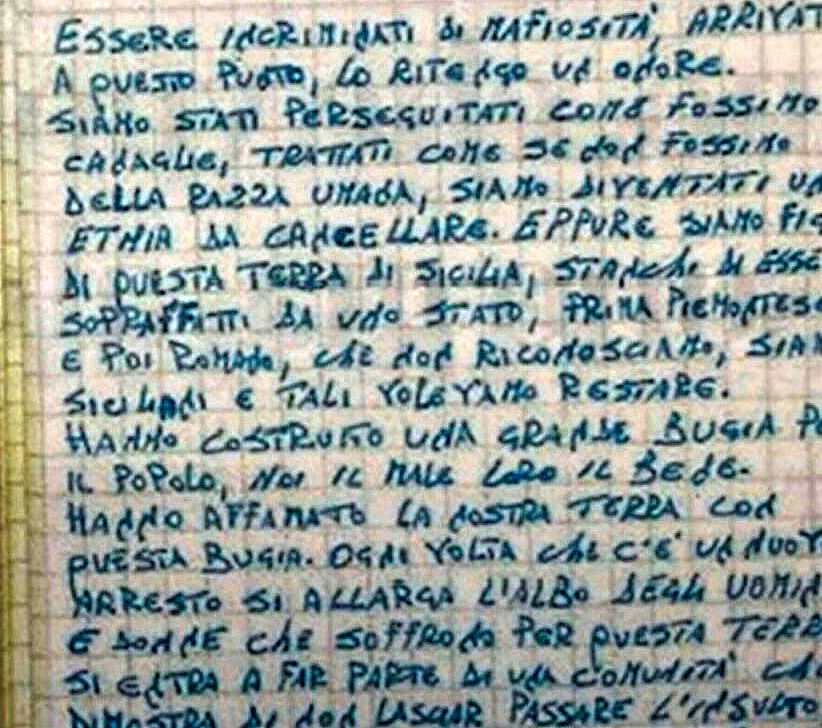 ESSERE INCRIMINATI DI MAFIOSITÀ, ARRIVAT
A QUESTO PUNTO, LO RITENGO UN ONORE.
SIAMO STATI PERSEGUITATI COME FOSSIMO
CANAGLIE, TRATTATI COME SE NON FOSSIMO
DELLA RAZZA UMANA, SIAMO DIVENTATI UN
ETNIA DA CANCELLARE. EPPURE SIAMO FIG
DI QUESTA TERRA DI SICILIA, STANCHI DI ESSE
SOPRAFFATTI DA UNO STATO, PRIMA PIEMONTESE
E POI ROMANO, CHE NON RICONOSCIAMO, SIAM
SICILIANI E TALI VOLEVAMO RESTARE.
HANNO COSTRUITO UNA GRANDE BUGIA PE
IL POPOLO, NOI IL MALE LORO IL BENE.
HANNO AFFAMATO LA NOSTRA TERRA CON
QUESTA BUGIA. OGNI VOLTA CHE C'È UN NUOV
ARRESTO SI ALLARGA L'ALBO DEGLI UOMIN
E DONNE CHE SOFFRONO PER QUESTA TERR
SI ENTRA A FAR PARTE DI UNA COMUNITÀ CHE
DIMOSTRA DI NON LASCIAR PASSARE L'INSULTO